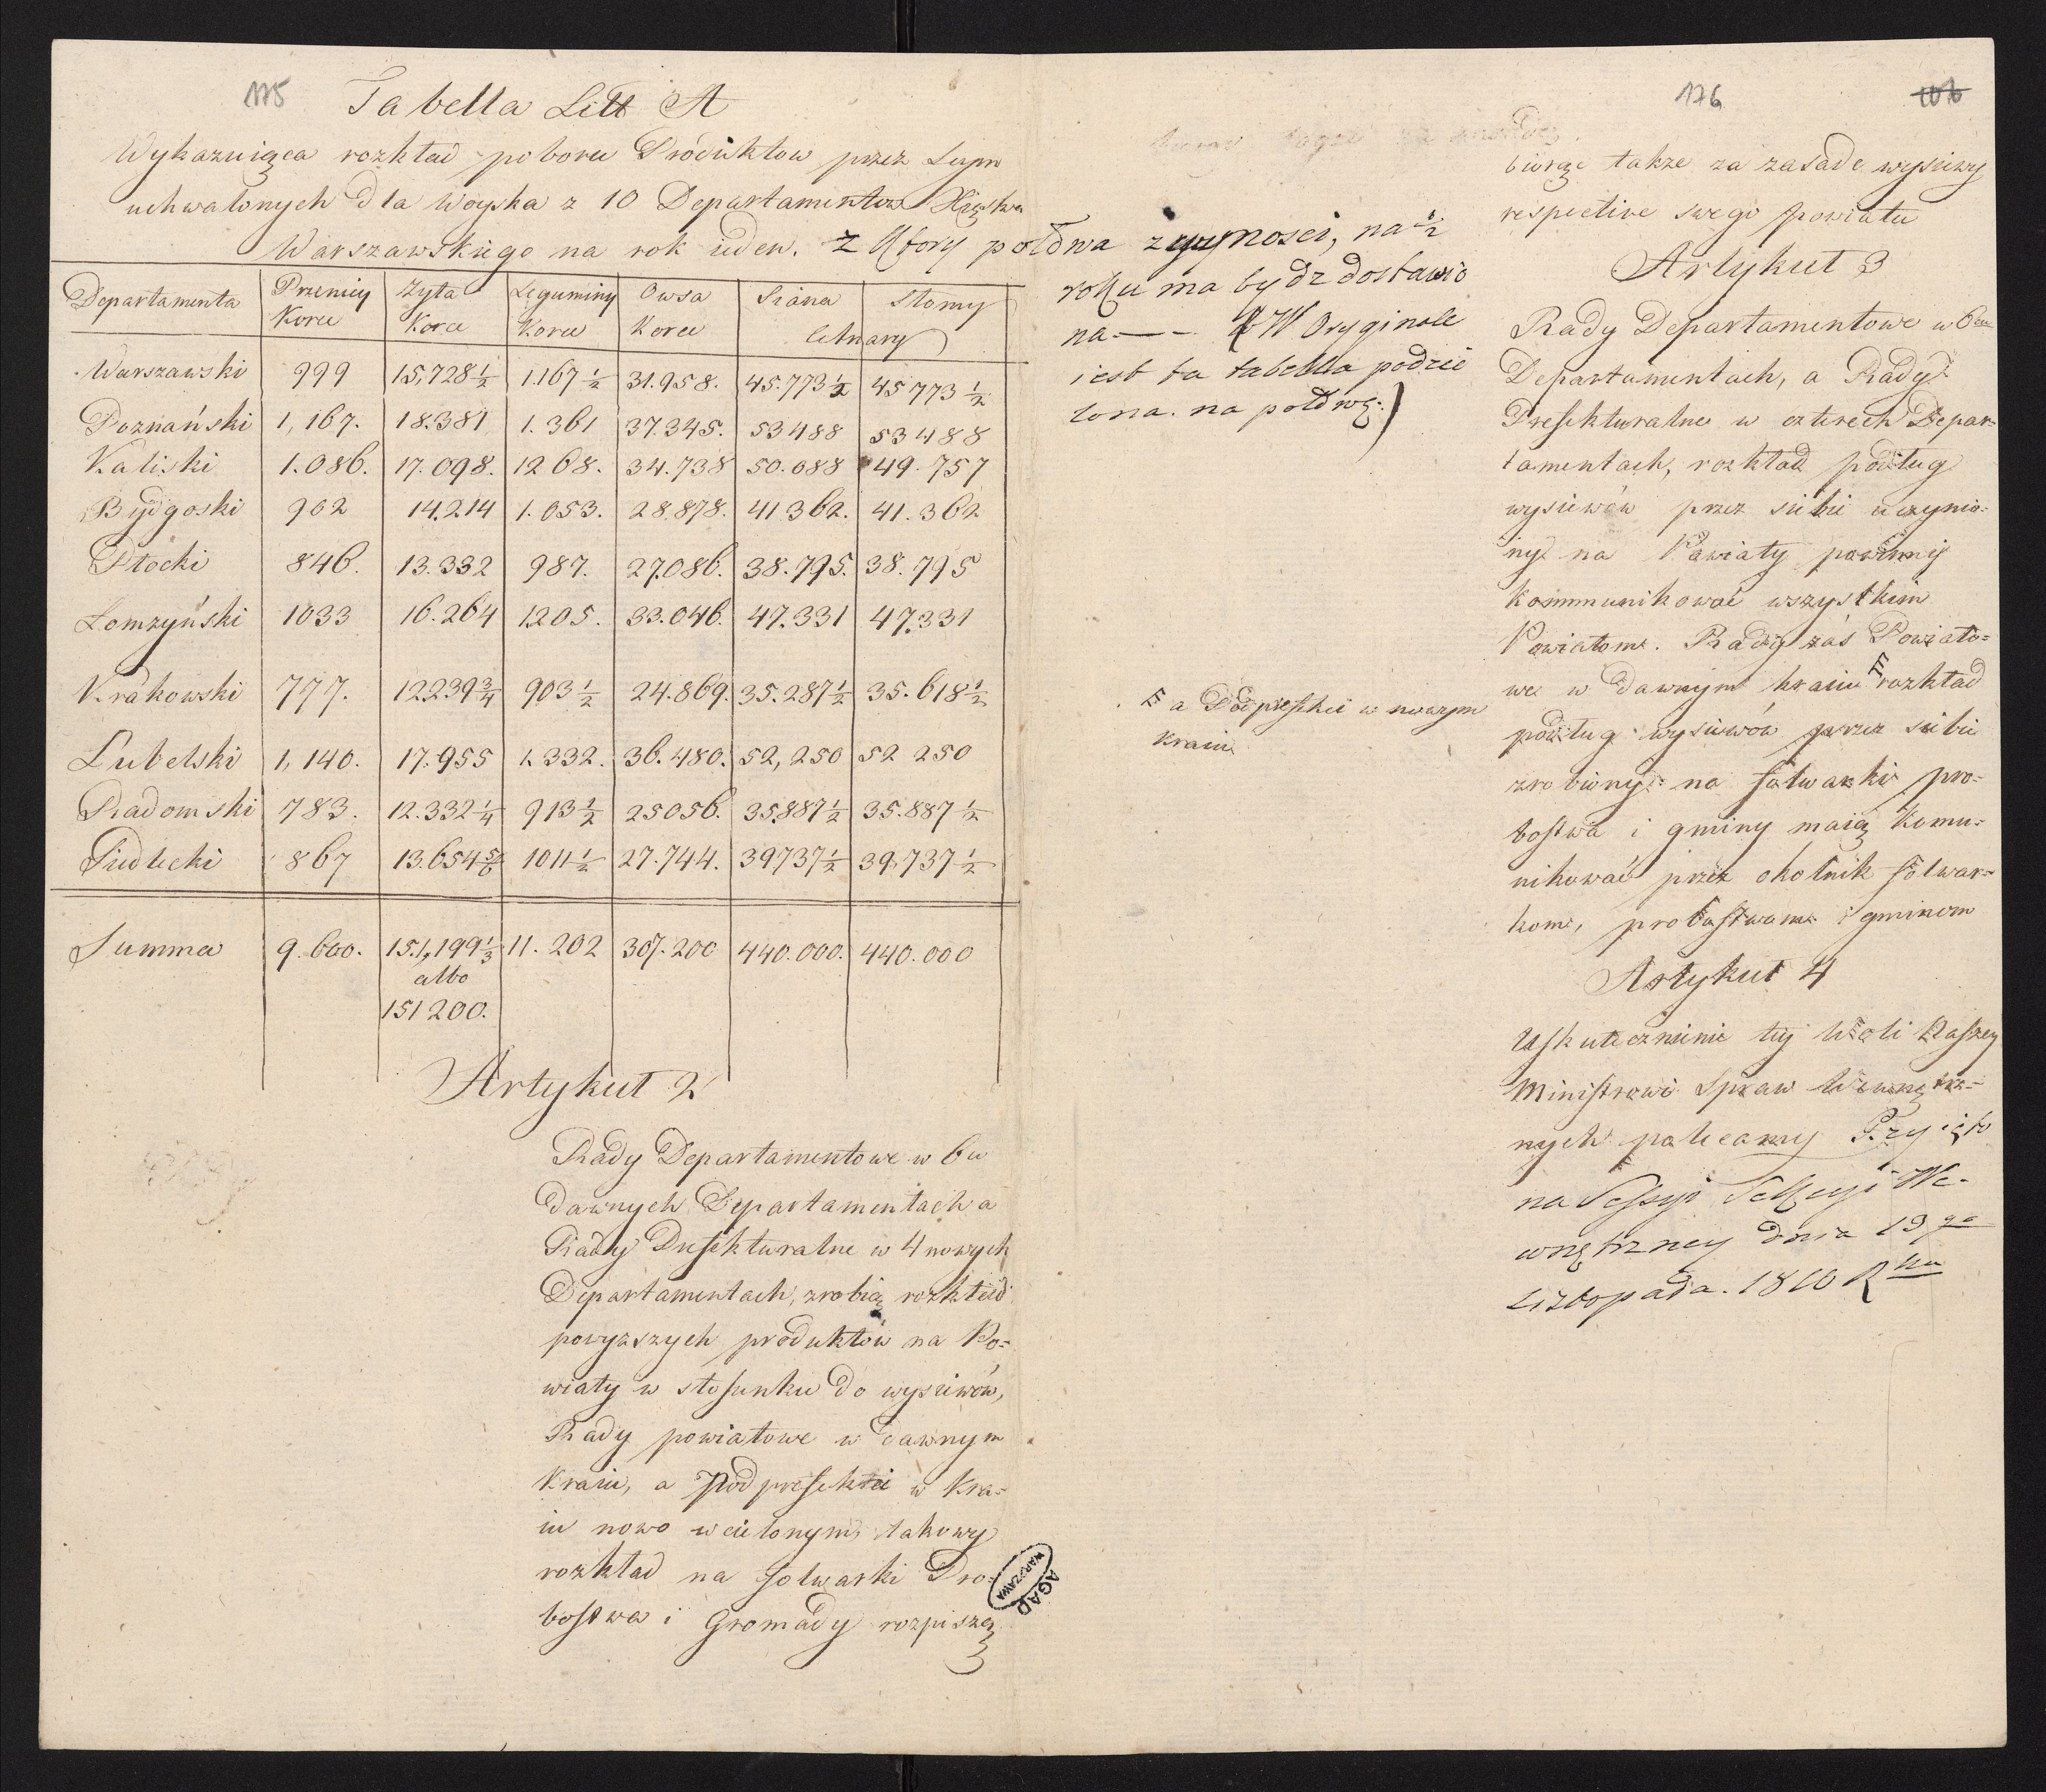 175
Tabella Litt A
Wykazuiąca rozkład poboru Próduktow przez Seym
uchwalonych dla Woyska z 10 Departamentow Xięstwa
Warszawskiego na rok ieden. z ktory połowa zyznosci, na ½
roku ma bydz dostawio
na — — W Oryginale
iest ta tabella podzie
lona na połowę.)
Departamenta | Przenicy Korcu | Zyta Korce | Leguminy Korcu | Owsa Korcu | Siana | Słomy
Cetnary
Warszawski | 999 | 15,728 ½ | 1.167 ½ | 31.958. | 45.773 ½ | 45773 ½
Poznański | 1,167. | 18.381 | 1.361 | 37.345. | 53488 | 53488
Kaliski | 1.086. | 17.098. | 1268. | 34.738 | 50.088 | 49.757
Bydgoski | 902 | 14.214 | 1.053. | 28.878. | 41362. | 41.362
Płocki | 846. | 13.332 | 987. | 27.086. | 38.795. | 38.795
Łomzyński | 1033 | 16.264 | 1205. | 33.046. | 47.331 | 47.331
Krakowski | 777. | 12239 ¾ | 903 ½ | 24.869. | 35.287 ½ | 35.618 ½
Lubelski | 1,140. | 17.955 | 1.332. | 36.480. | 52,250 | 52 250
Radomski | 783. | 12.332 ¼ | 913 ½ | 25056. | 35.887 ½ | 35.887 ½
Siedlecki | 867 | 13.654 5/6 | 1011 ½ | 27.744. | 39737 ½ | 39,737 ½
Summa | 9.600. | 151,199 ⅓ | 11.202 | 307.200 | 440.000. | 440.000
albo
151200.
Artykuł 2
Rady Departamentowe w 6u
dawnych Departamentach a
Rady Prefekturalne w 4 nowych
Departamentach, zrobią rozkład
powyzszych produktów na Po=
wiaty w stosunku do wysiewów,
Rady powiatowe w dawnym
Kraiu, a Podprefekci w Kra=
iu nowo wcielonym, takowy
rozkład na folwarki Pro=
bostwa i Gromady rozpiszą
AGAD
WARSZAWA
176
biorąc takze za zasadę wysiewy
respective swego powiatu
Artykuł 3
Rady Departamentowe w 6ciu
Departamentach, a Rady
Prefekturalne w czterech Depar=
tamentach, rozkład podług
wysiewów przez siebie uczynio=
ny na Powiaty powinny
kommunikować wszystkim
Powiatom. Rady zaś Powiato=
we w dawnym kraiu F rozkład
F a Podprefekci w nowym
kraiu
podług wysiewów przez siebie
zrobiony na folwarki pro=
bostwa i gminy maią komu=
nikować przez okolnik folwar=
kom, probostwom i gminom
Artykuł 4
Uskutecznienie tey Woli Naszey
Ministrowi Spraw Wewnętrz=
nych polecamy Przyięto
na Sessyi Sekcyi We-
wnętrzney dnia 19go
Listopada. 1810 Rku